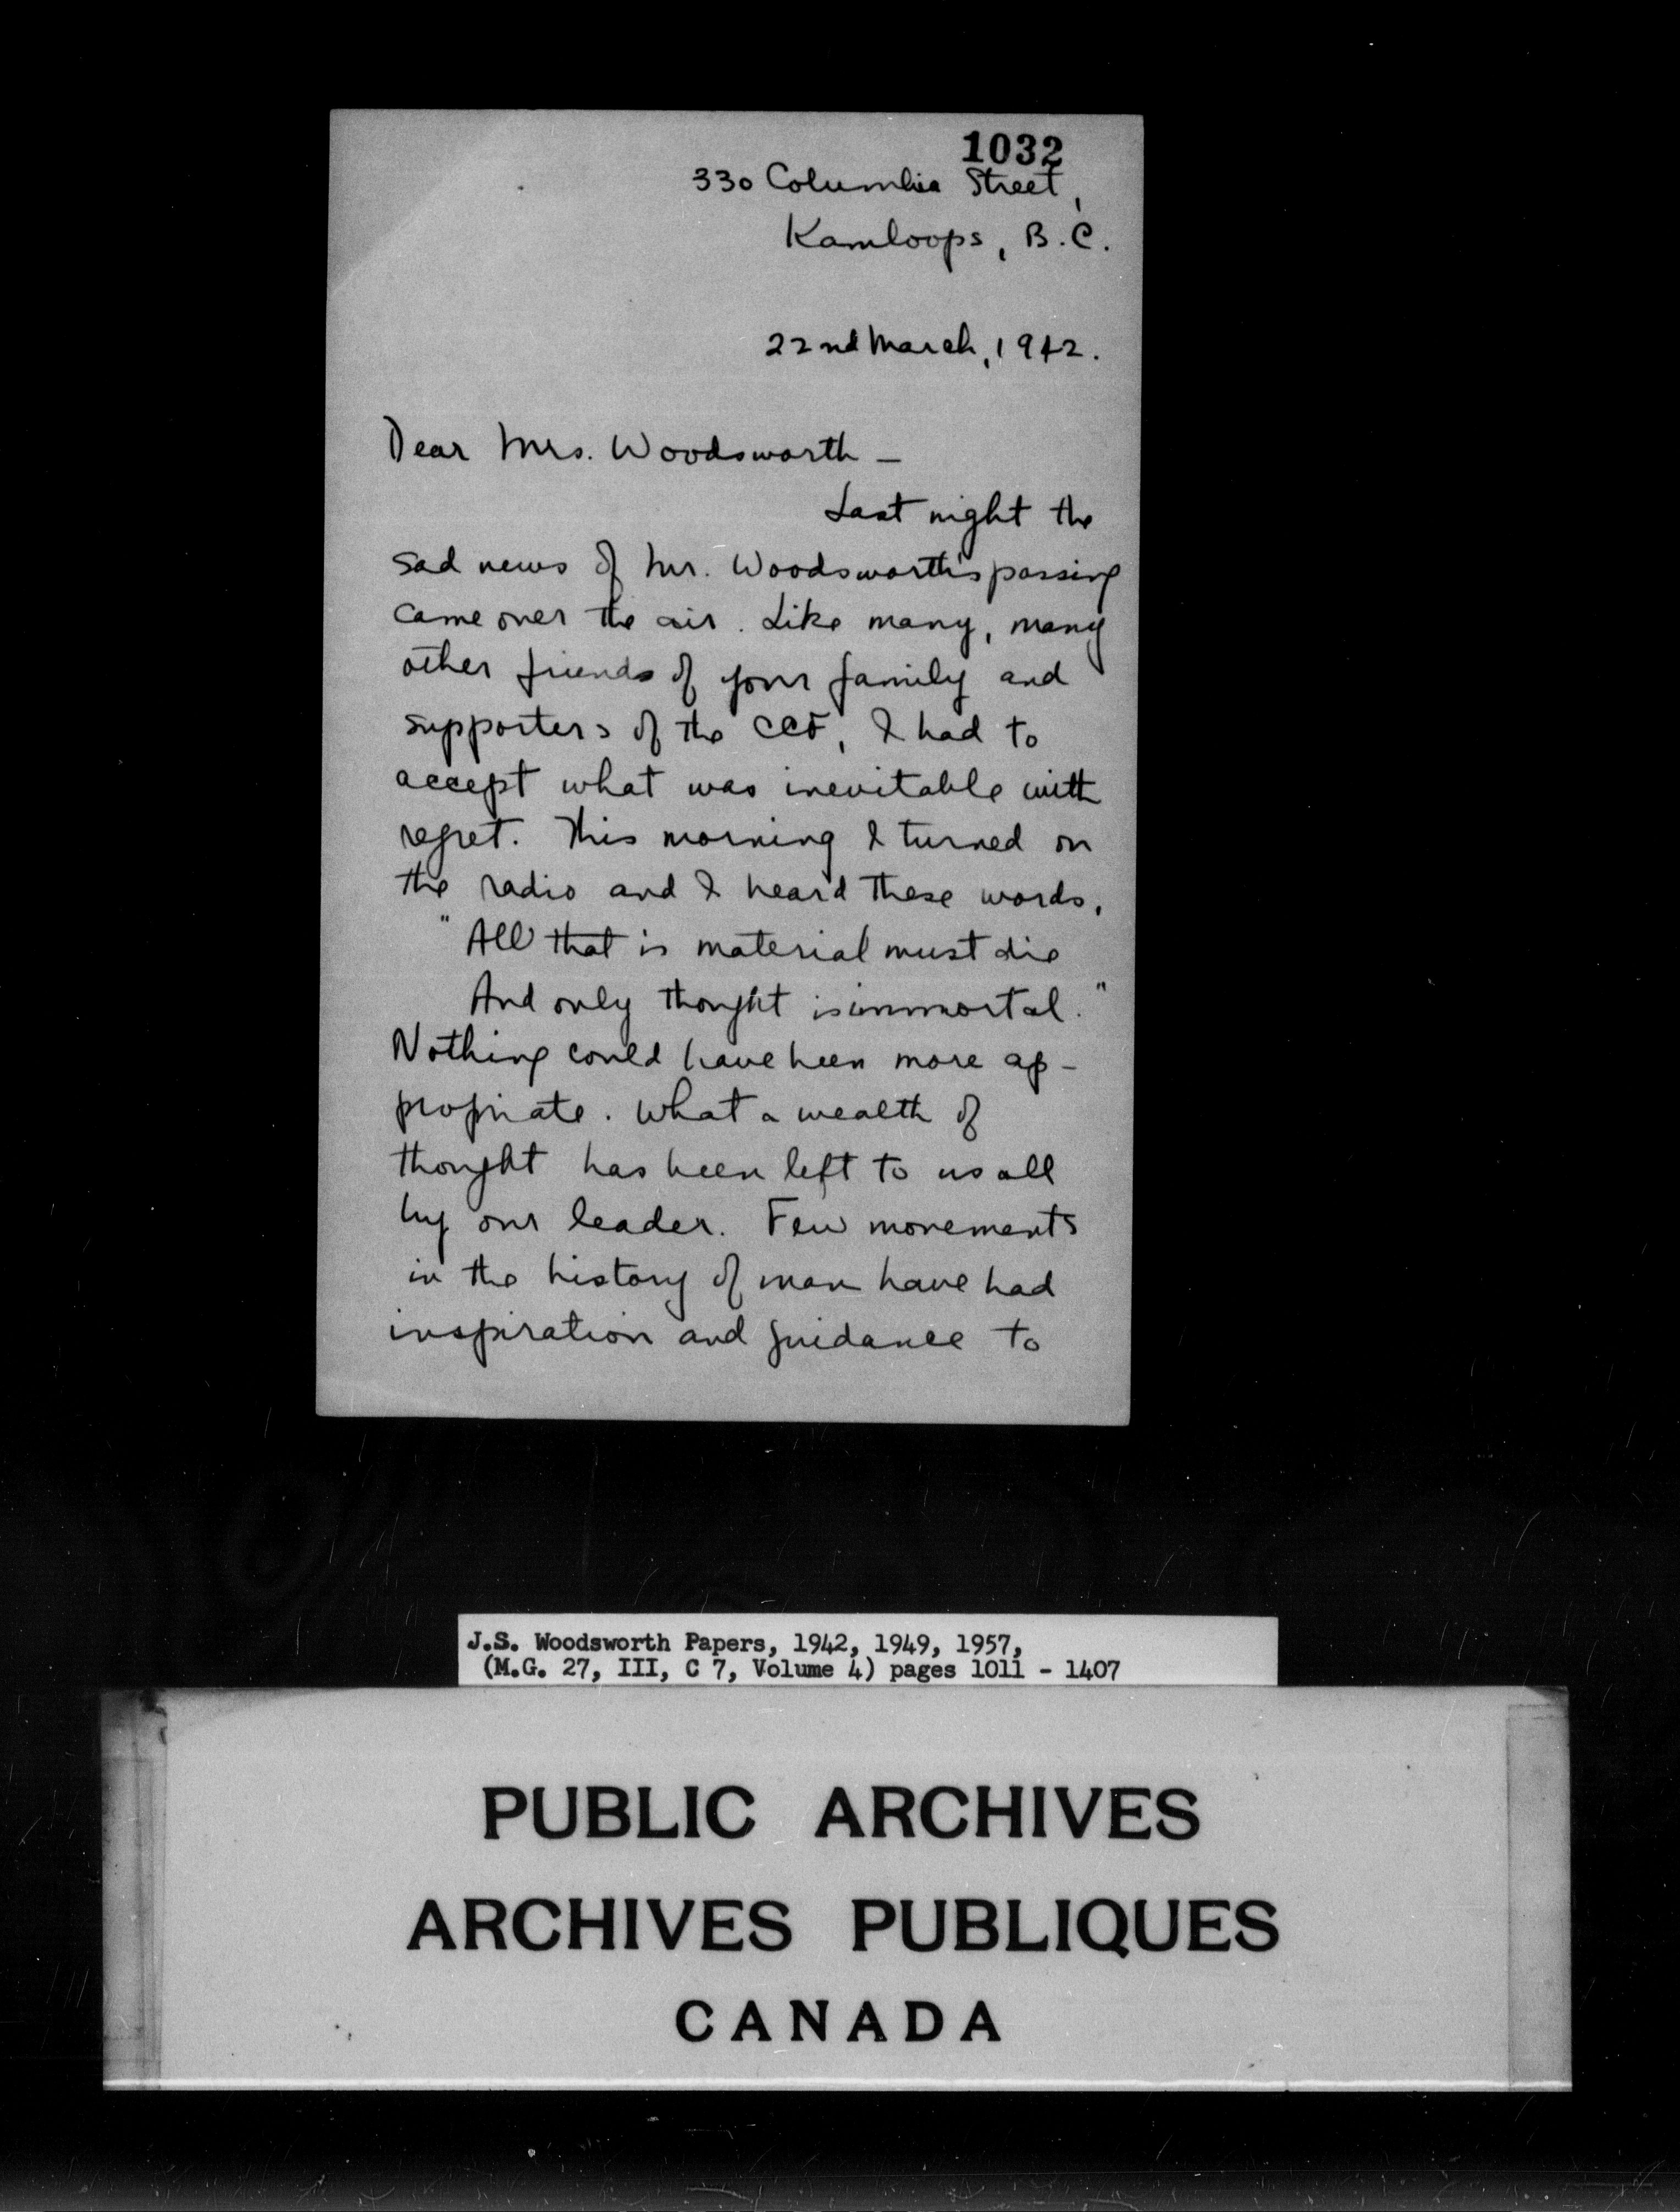 1032
330 Columbia Street,
Kamloops, B.C.
22nd March, 1942.
Dear Mrs. Woodsworth —
Last night the
sad news of Mr. Woodsworth's passing
came over the air. Like many, many
other friends of your family and
supporters of the CCF, I had to
accept what was inevitable with
regret. This morning I turned on
the radio and I heard these words,
"All that is material must die
And only thought is immortal."
Nothing could have been more ap-
propriate. What a wealth of
thought has been left to us all
by our leader. Few movements
in the history of man have had
inspiration and guidance to
J.S. Woodsworth Papers, 1942, 1949, 1957,
(M.G. 27, III, C 7, Volume 4) pages 1011 - 1407
PUBLIC ARCHIVES
ARCHIVES PUBLIQUES
CANADA